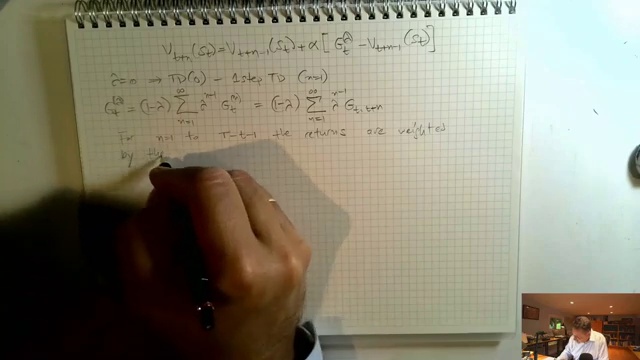 V_{t+n}(S_t) = V_{t+n-1}(S_t) + α[G_t^λ - V_{t+n-1}(S_t)]
λ=0 ⇒ TD(0) - 1 step TD (n=1)
G_t^{(λ)} = (1-λ) ∑_{n=1}^{∞} λ^{n-1} G_t^{(n)} = (1-λ) ∑_{n=1}^{∞} λ^{n-1} G_{t,t+n}
For n=1 to T-t-1 the returns are weighted
by the